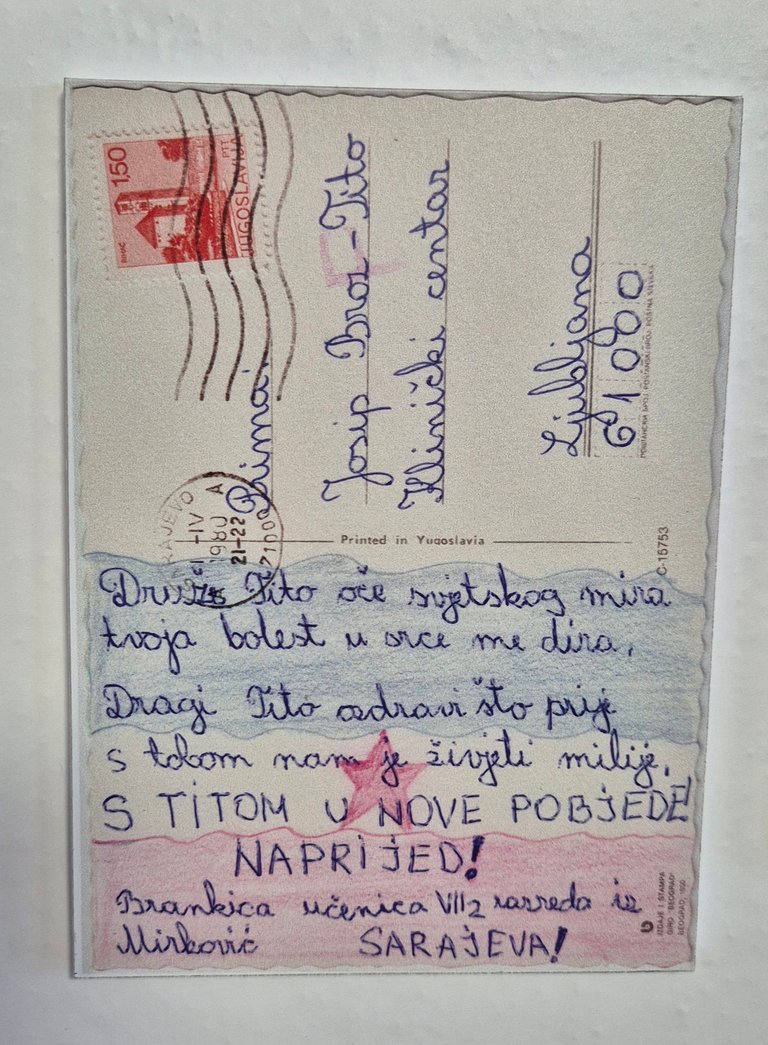 1,50
PTT
JUGOSLAVIJA
BIHAĆ
Prima:
Josip Broz-Tito
Klinički centar
Ljubljana
61000
POŠTANSKI BROJ
-IV
1980 A
21-22
71000
Printed in Yugoslavia
C-15753
Druže Tito oče svjetskog mira
tvoja bolest u srce me dira,
Dragi Tito ozdravi što prije
s tobom nam je živjeti milije,
S TITOM U NOVE POBJEDE
NAPRIJED!
Brankica učenica VII2 razreda iz
Mirković SARAJEVA!
IZDAJE I ŠTAMPA
GIRO "BEOGRAD"
BEOGRAD,